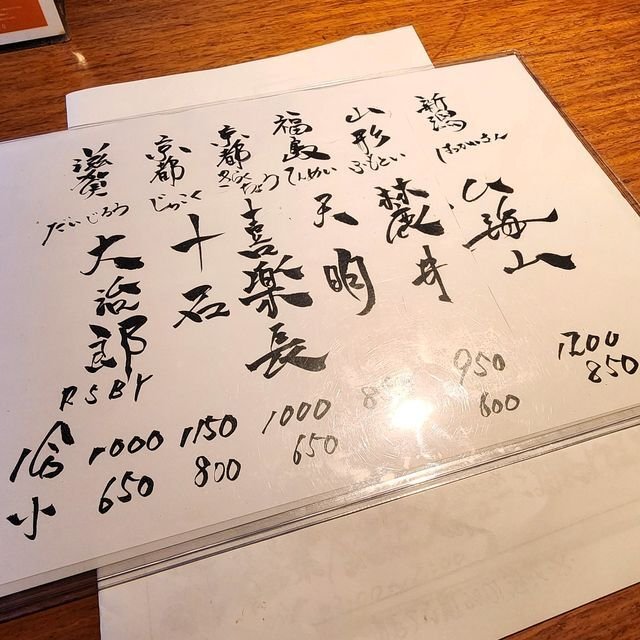 新潟
はっかいさん
八海山
1200
850
山形
ふもとい
麓井
950
600
福島
てんめい
天明
京都
きらくちょう
喜楽長
1000
650
京都
じっこく
十石
1150
800
滋賀
だいじろう
大治郎
RSBY
1000
650
1合
小